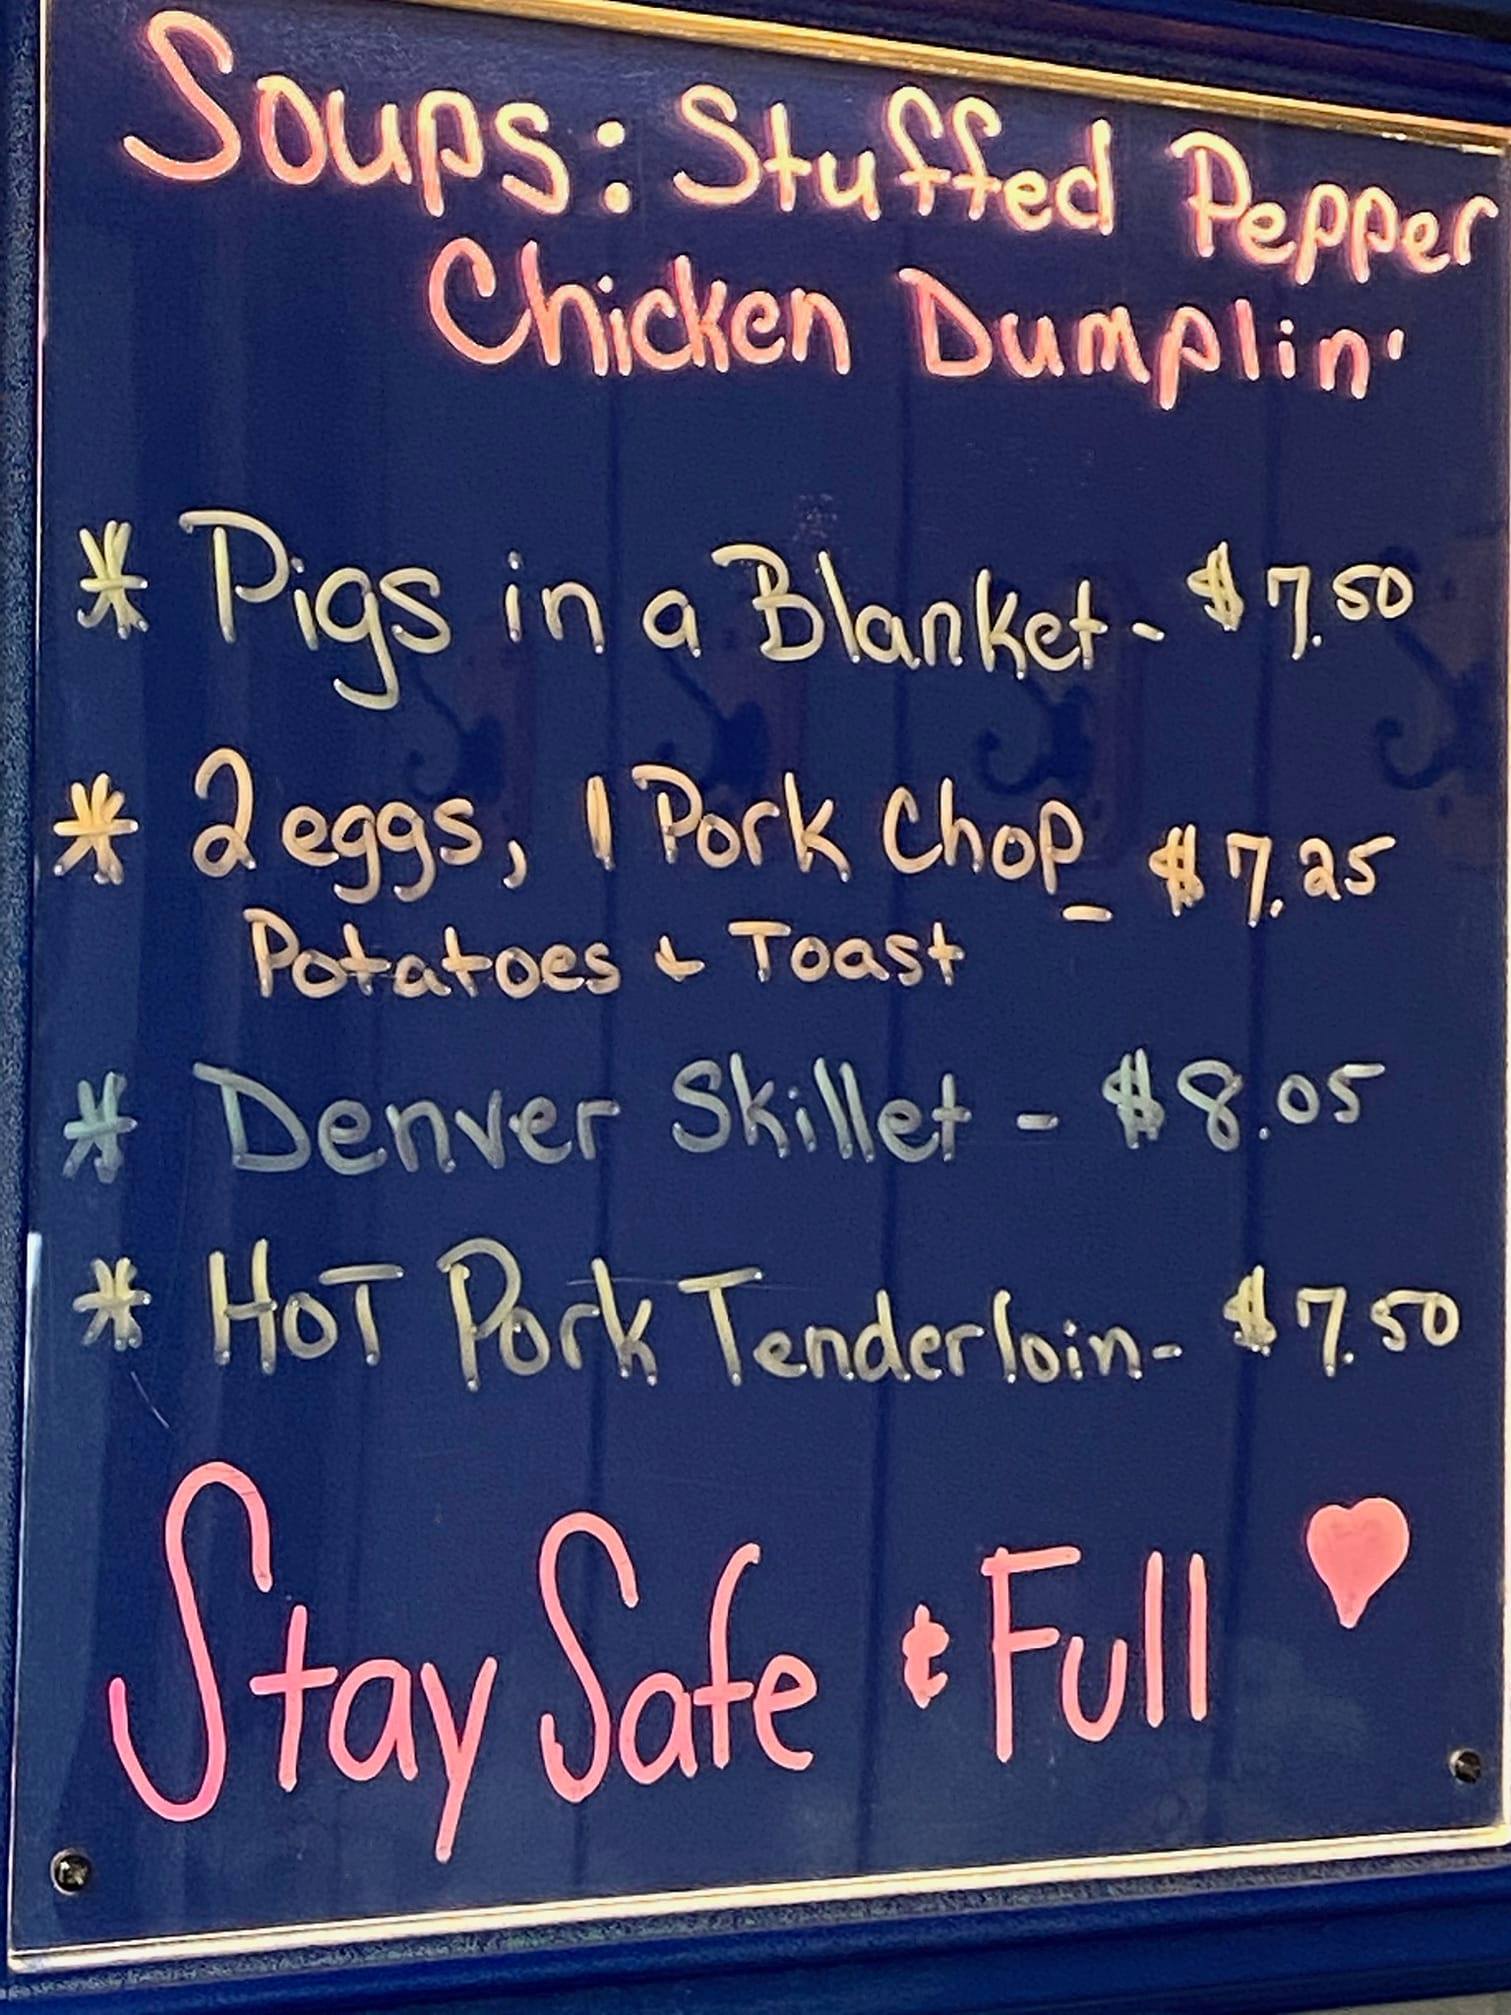 Soups: Stuffed Pepper
Chicken Dumplin'
* Pigs in a Blanket - $7.50
* 2 eggs, 1 Pork Chop - $7.25
Potatoes + Toast
* Denver Skillet - $8.05
* HOT Pork Tenderloin - $7.50
Stay Safe & Full ♥